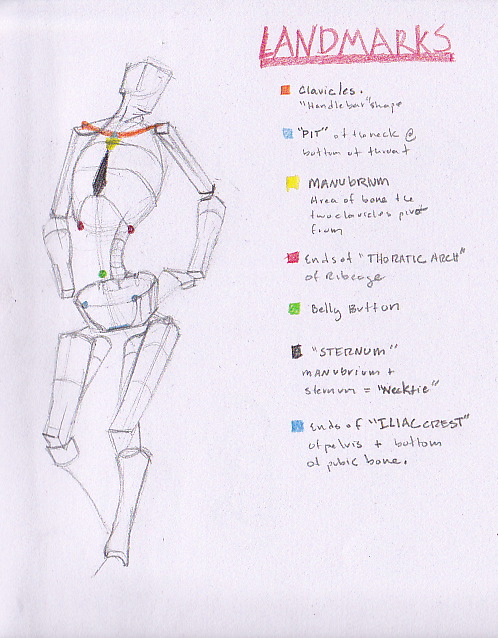 LANDMARKS
Clavicles.
"Handlebar" shape
"PIT" of the neck @
bottom of throat
MANUBRIUM
Area of bone the
two clavicles pivot
from
Ends of "THORATIC ARCH"
of Ribcage
Belly Button
"STERNUM"
manubrium +
sternum = "Necktie"
Ends of "ILIAC CREST"
of pelvis + bottom
of pubic bone.